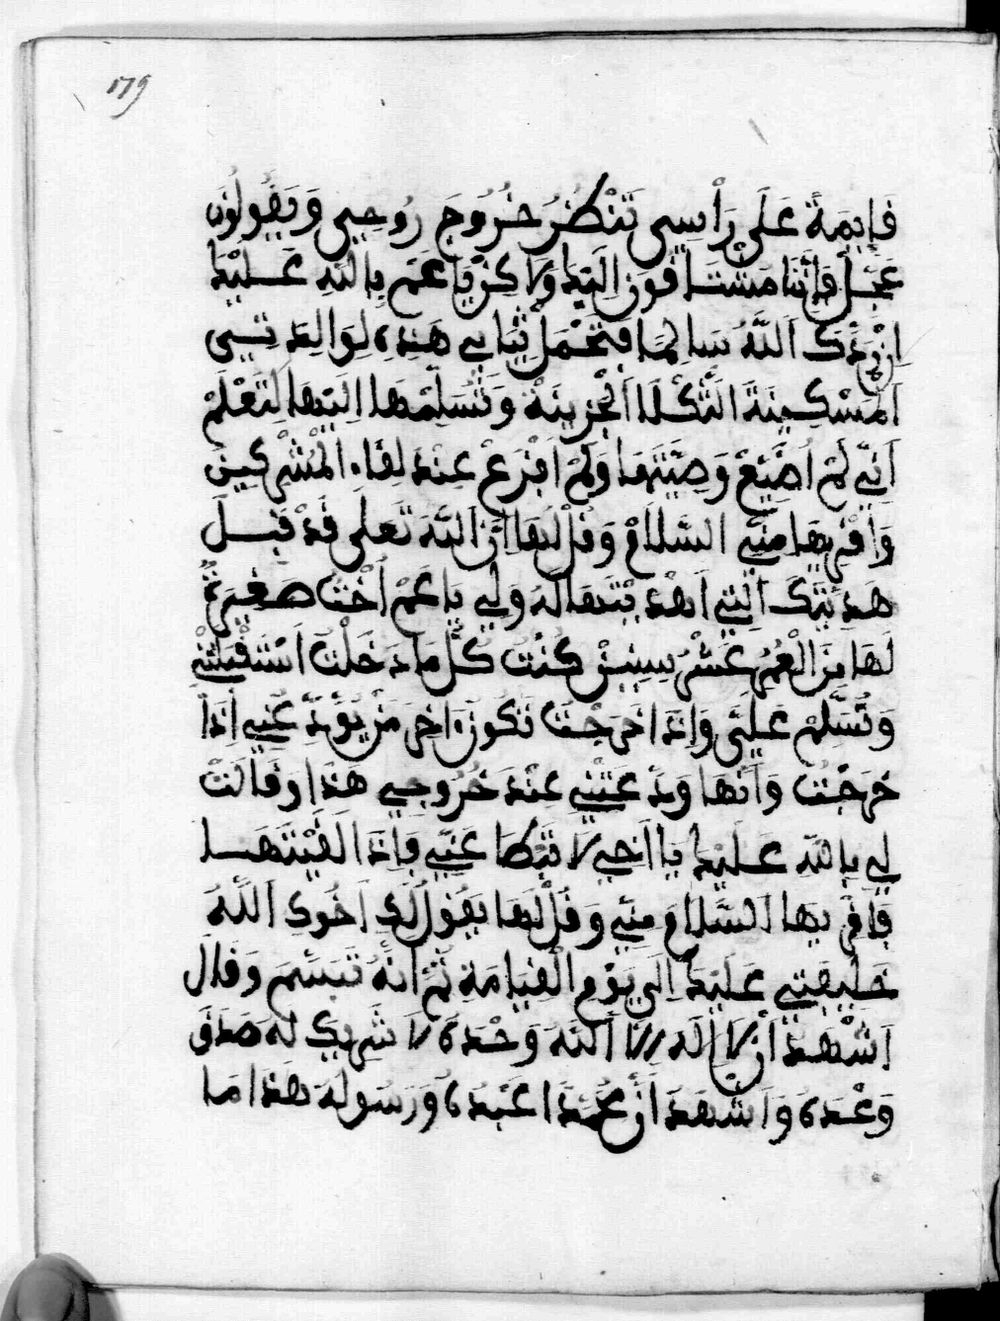 179
فَإيمَةً عَلَى رَأْسِي تَنْظُرُ خُرُوجَ رُوحِي وَيَقُولُونَ
عَجِّلْ فَإِنَّنَا مَشْتَافُونَ إِلَيْكَ وَلَاكِنْ يَا عَمِّ بِاللَّهِ عَلَيْكَ
إنْ رَدَّكَ اللَّهُ سَالِمًا فَتَحْمَلْ ثِيَابِي هَذِهِ لِوَالِدَتِي
الْمَسْكِينَةَ الثَّكْلَا الْحَزِينَةْ وَتُسَلِّمْهَا إِلَيْهَا لِتَعْلَمْ
أَنِّي لَمْ أُضَيِّعْ وَصِيَّتَهَا وَلَمْ أَفْزَعْ عِنْدَ لِفَاءِ الْمُشْرِكِينَ
وَافْرِيهَا مِنِّي السَّلَامْ وَفُلْ لَهَا إِنَّ اللَّهَ تَعَلَى فَدْ فَبِلَ
هَدِيَّتَكِ الَّتِي أَهْدَيْتَهَا لَهُ وَلِي يَا عَمْ أُخْتٌ صَغِيرَةٌ
لَهَا مِنَ الْعُمُرِ عَشْرُ سِنِينَ كُنْتُ كُلَّ مَا دَخَلْتُ اسْتَفْبَلَتْنِي
وَتُسَلِّمْ عَلَيَّ وَإِذَا خَرَجْتُ تَكُونُ ءَاخِرَ مَنْ يُوَدِّ عُنِي إِذَا
خَرَجْتُ وَأَنَّهَا وَدَّ عَتْنِي عِنْدَ خُرُوجِي هَذَا وَفَالَتْ
لِي بِاللَّهِ عَلَيْكَ يَا أَخِي لَا تَبْطَا عَنِّي فَإِذَا لَفَيْتَهَا
فَافْرِيهَا السَّلَامْ مِنِّي وَفُلْ لَهَا يَفُولُ لَكِ أَخُوكِ اللَّهُ
خَلِيفَتِي عَلَيْكِ إِلَى يَوْمِ الْفِيَامَةِ ثُمَّ أَنَّهُ تَبَسَّمَ وَفَالَ
أَشْهَدُ أَنْ لَا إِلَهَ إِلَّا اللَّهَ وَحْدَهُ لَا شَرِيكَ لَهُ صَدَقَ
وَعْدَهُ وَأَشْهَدُ أَنَّ مُحَمَّدًا عَبْدُهُ وَرَسُولُهُ هَذَا مَا